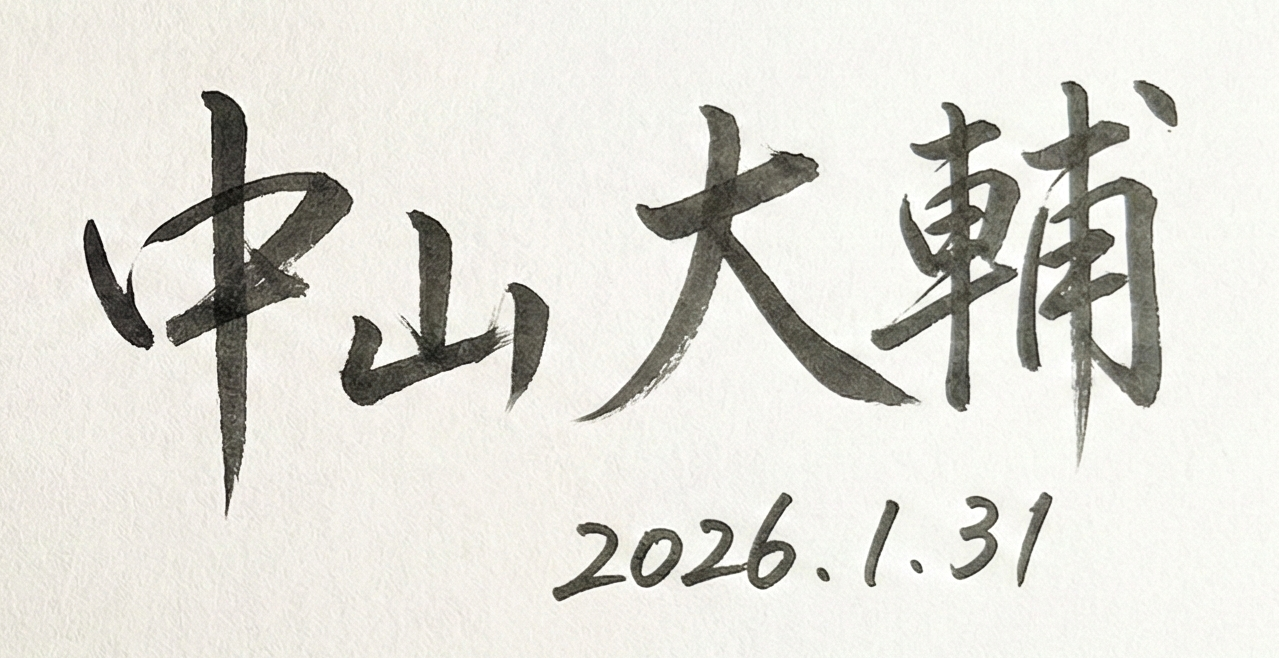 中山大輔
2026.1.31